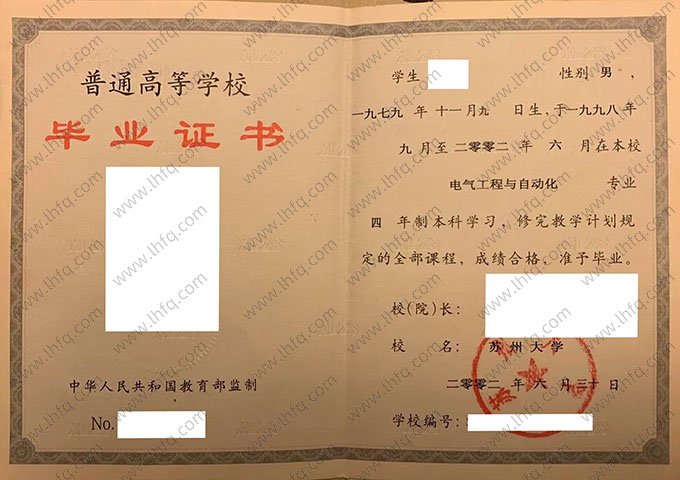 普通高等学校
毕业证书
中华人民共和国教育部监制
No.
学生 性别 男，
一九七九 年 十一 月 九 日生，于 一九九八 年
九 月至 二零零二 年 六 月在本校
电气工程与自动化 专业
四 年制本科学习，修完教学计划规
定的全部课程，成绩合格，准予毕业。
校(院)长：
校 名： 苏州大学
二零零二 年 六 月 三十 日
学校编号：
www.lhfq.com